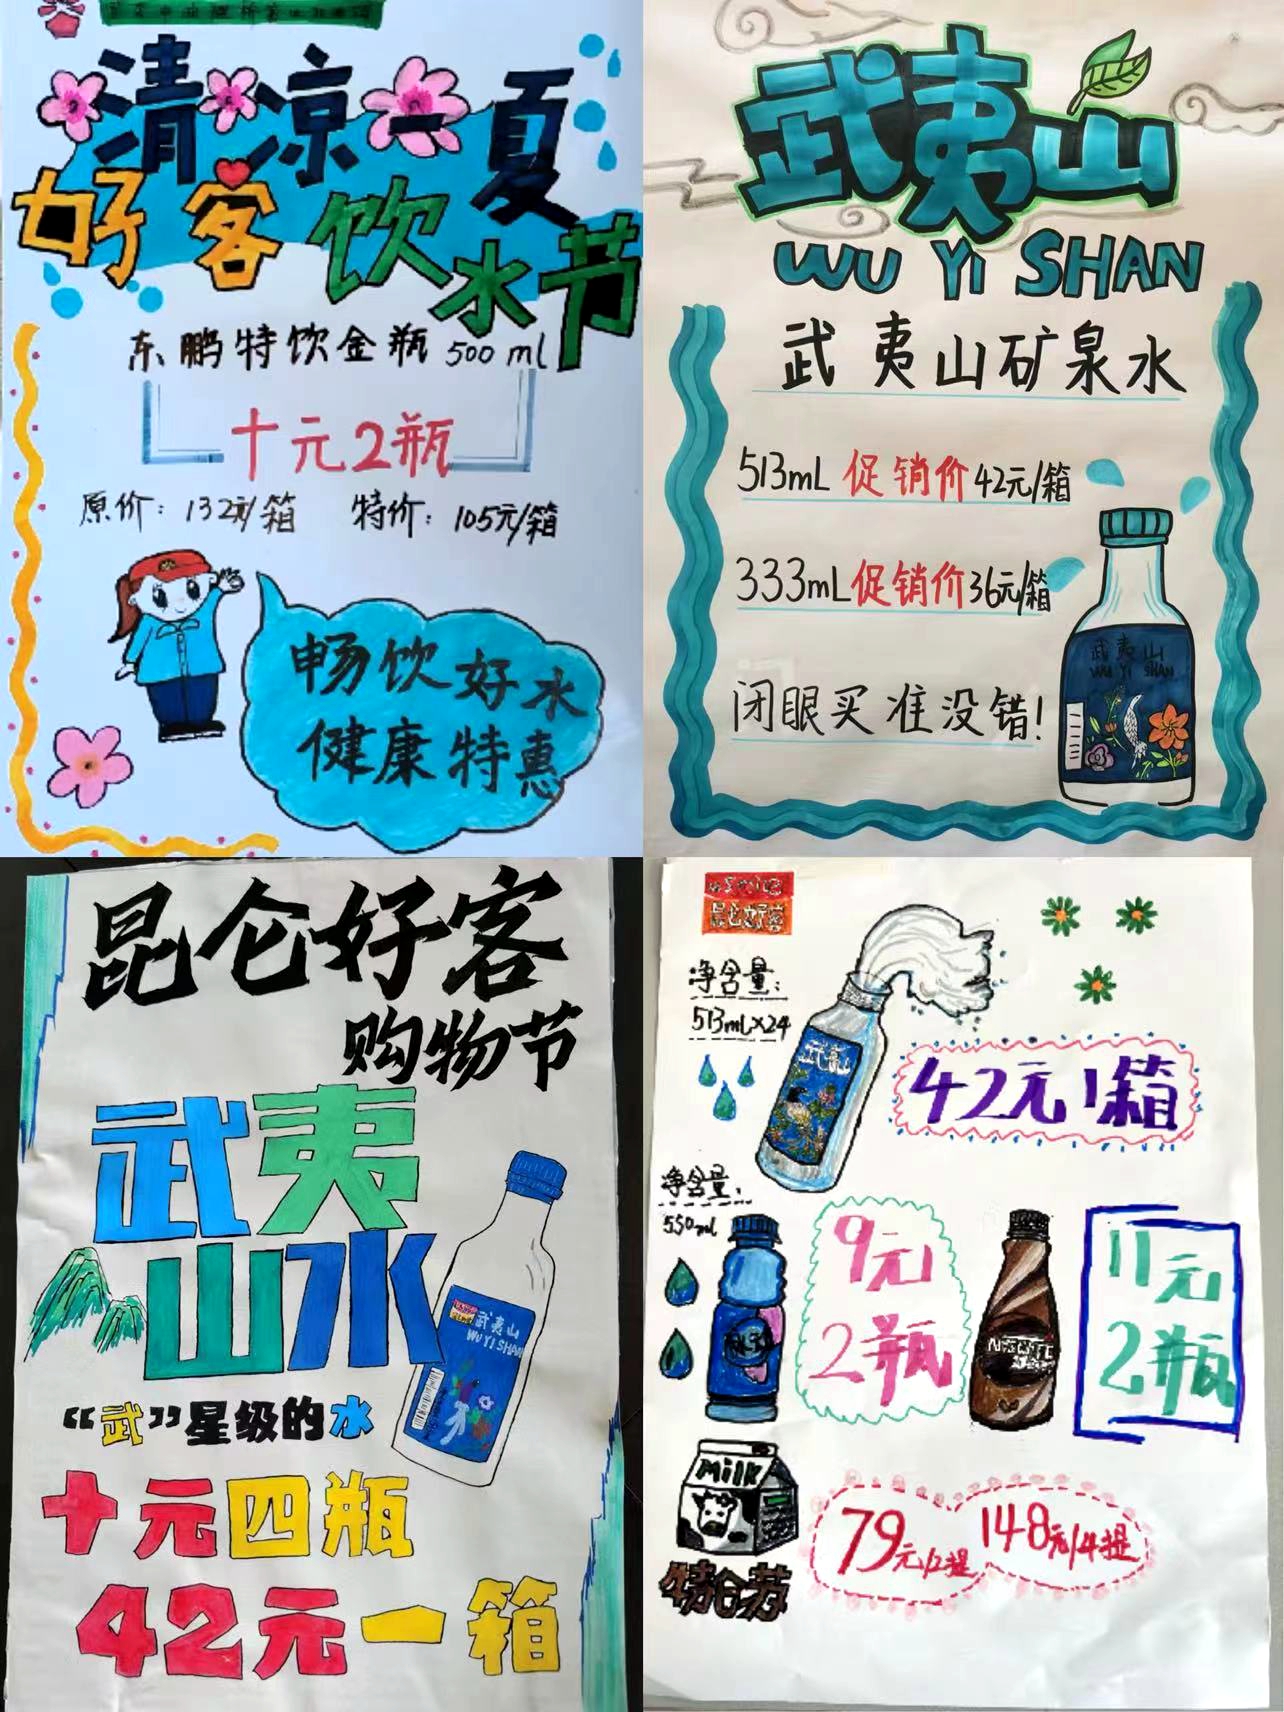 清凉一夏
好客饮水节
东鹏特饮金瓶 500ml
十元2瓶
原价：132元/箱 特价：105元/箱
畅饮好水
健康特惠
武夷山
WU YI SHAN
武夷山矿泉水
513mL 促销价 42元/箱
333mL 促销价 36元/箱
闭眼买准没错！
武夷山
WU YI SHAN
昆仑好客
购物节
武夷
山水
武夷山
WU YI SHAN
“武”星级的水
十元四瓶
42元一箱
昆仑好客
净含量：
513mL×24
武夷山
42元1箱
净含量：
550ml
9元
2瓶
11元
2瓶
Milk
79元/2提
148元/4提